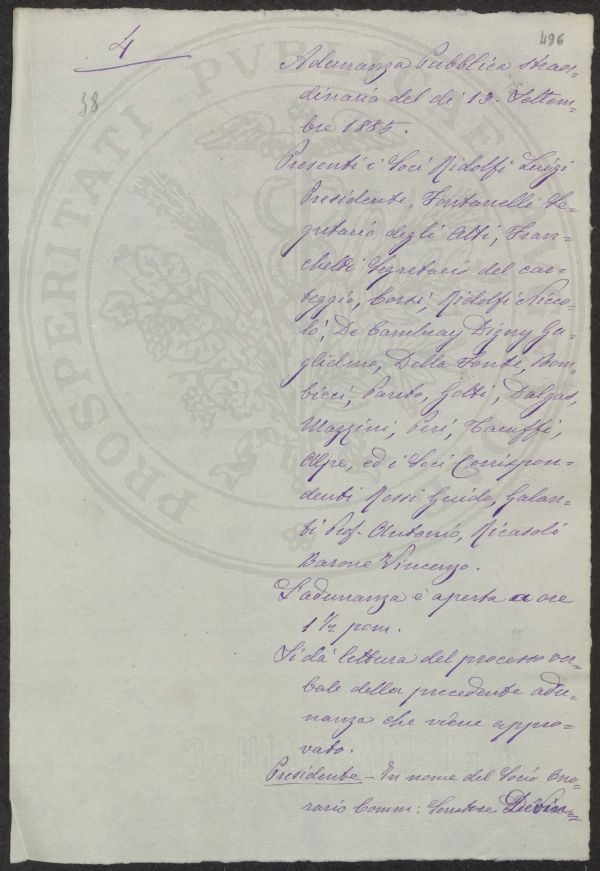 4
496
38
Adunanza Pubblica straor=
dinaria del dì 13. Settem=
bre 1885.
Presenti i Soci Ridolfi Luigi
Presidente, Fontanelli Se=
gretario degli Atti, Fran=
chetti Segretario del car=
teggio, Corsi, Ridolfi Nicco=
lò, De Cambray Digny Gu=
glielmo, Della Fonte, Bom=
bicci, Pareto, Gotti, Dalgas,
Mazzini, Peri, Taruffi,
Alpe, ed i Soci Corrispon=
denti Rossi Guido, Galan=
ti Prof. Antonio, Ricasoli
Barone Vincenzo.
L'adunanza è aperta a ore
1 1/2 pom.
Si dà lettura del processo ver=
bale della precedente adu=
nanza che viene appro=
vato.
Presidente - In nome del Socio Ono=
rario Comm: Senatore Devin=
PROSPERITATI PVBLICAE